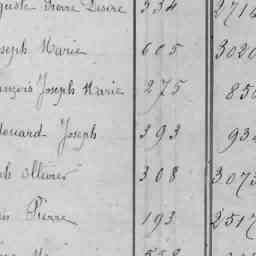 guste Pierre Désiré 334 2716
seph Marie 605 3020
ançois Joseph Marie 275 850
douard Joseph 393 934
ph Ollivier 308 3073
is Pierre 193 2517
558